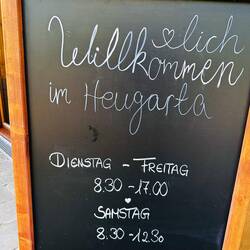 Willkommen ♥lich
im Heugarta
DIENSTAG - FREITAG
8.30 - 17.00
♥
SAMSTAG
8.30 - 12.30